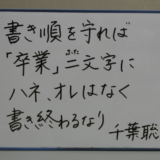 書き順を守れば
「卒業」二文字に
ハネ、オレはなく
書き終わるなり 千葉聡